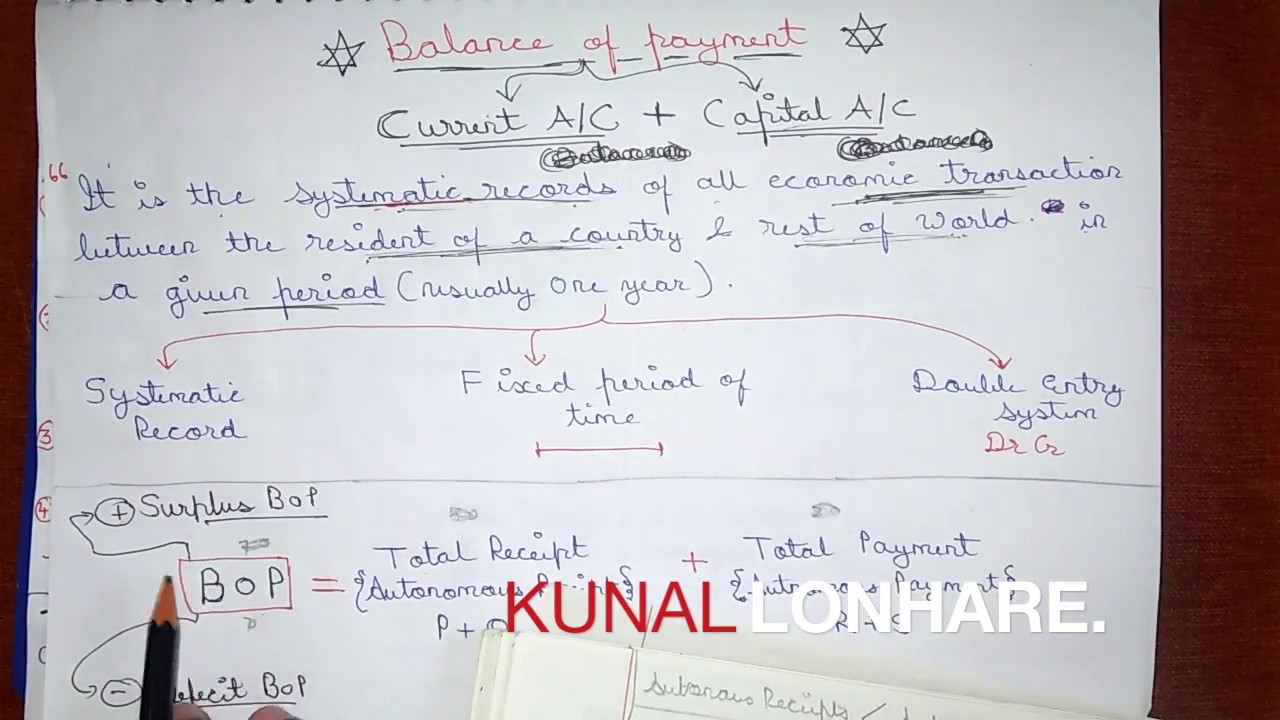 Balance of payment
Current A/C + Capital A/C
66
It is the systematic records of all economic transaction
between the resident of a country & rest of world. in
a given period (usually one year).
Systematic
Record
Fixed period of
time
Double entry
system
Dr Cr
3
4
+ Surplus BOP
BOP = Total Receipt + Total Payment
{Autonomous {Autonomous Payment}
P +
KUNAL LONHARE.
- Deficit BOP
Autonomous Receipts /